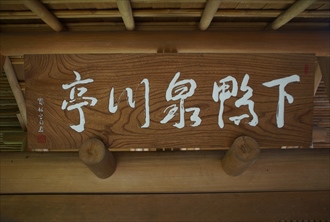 下鴨泉川亭